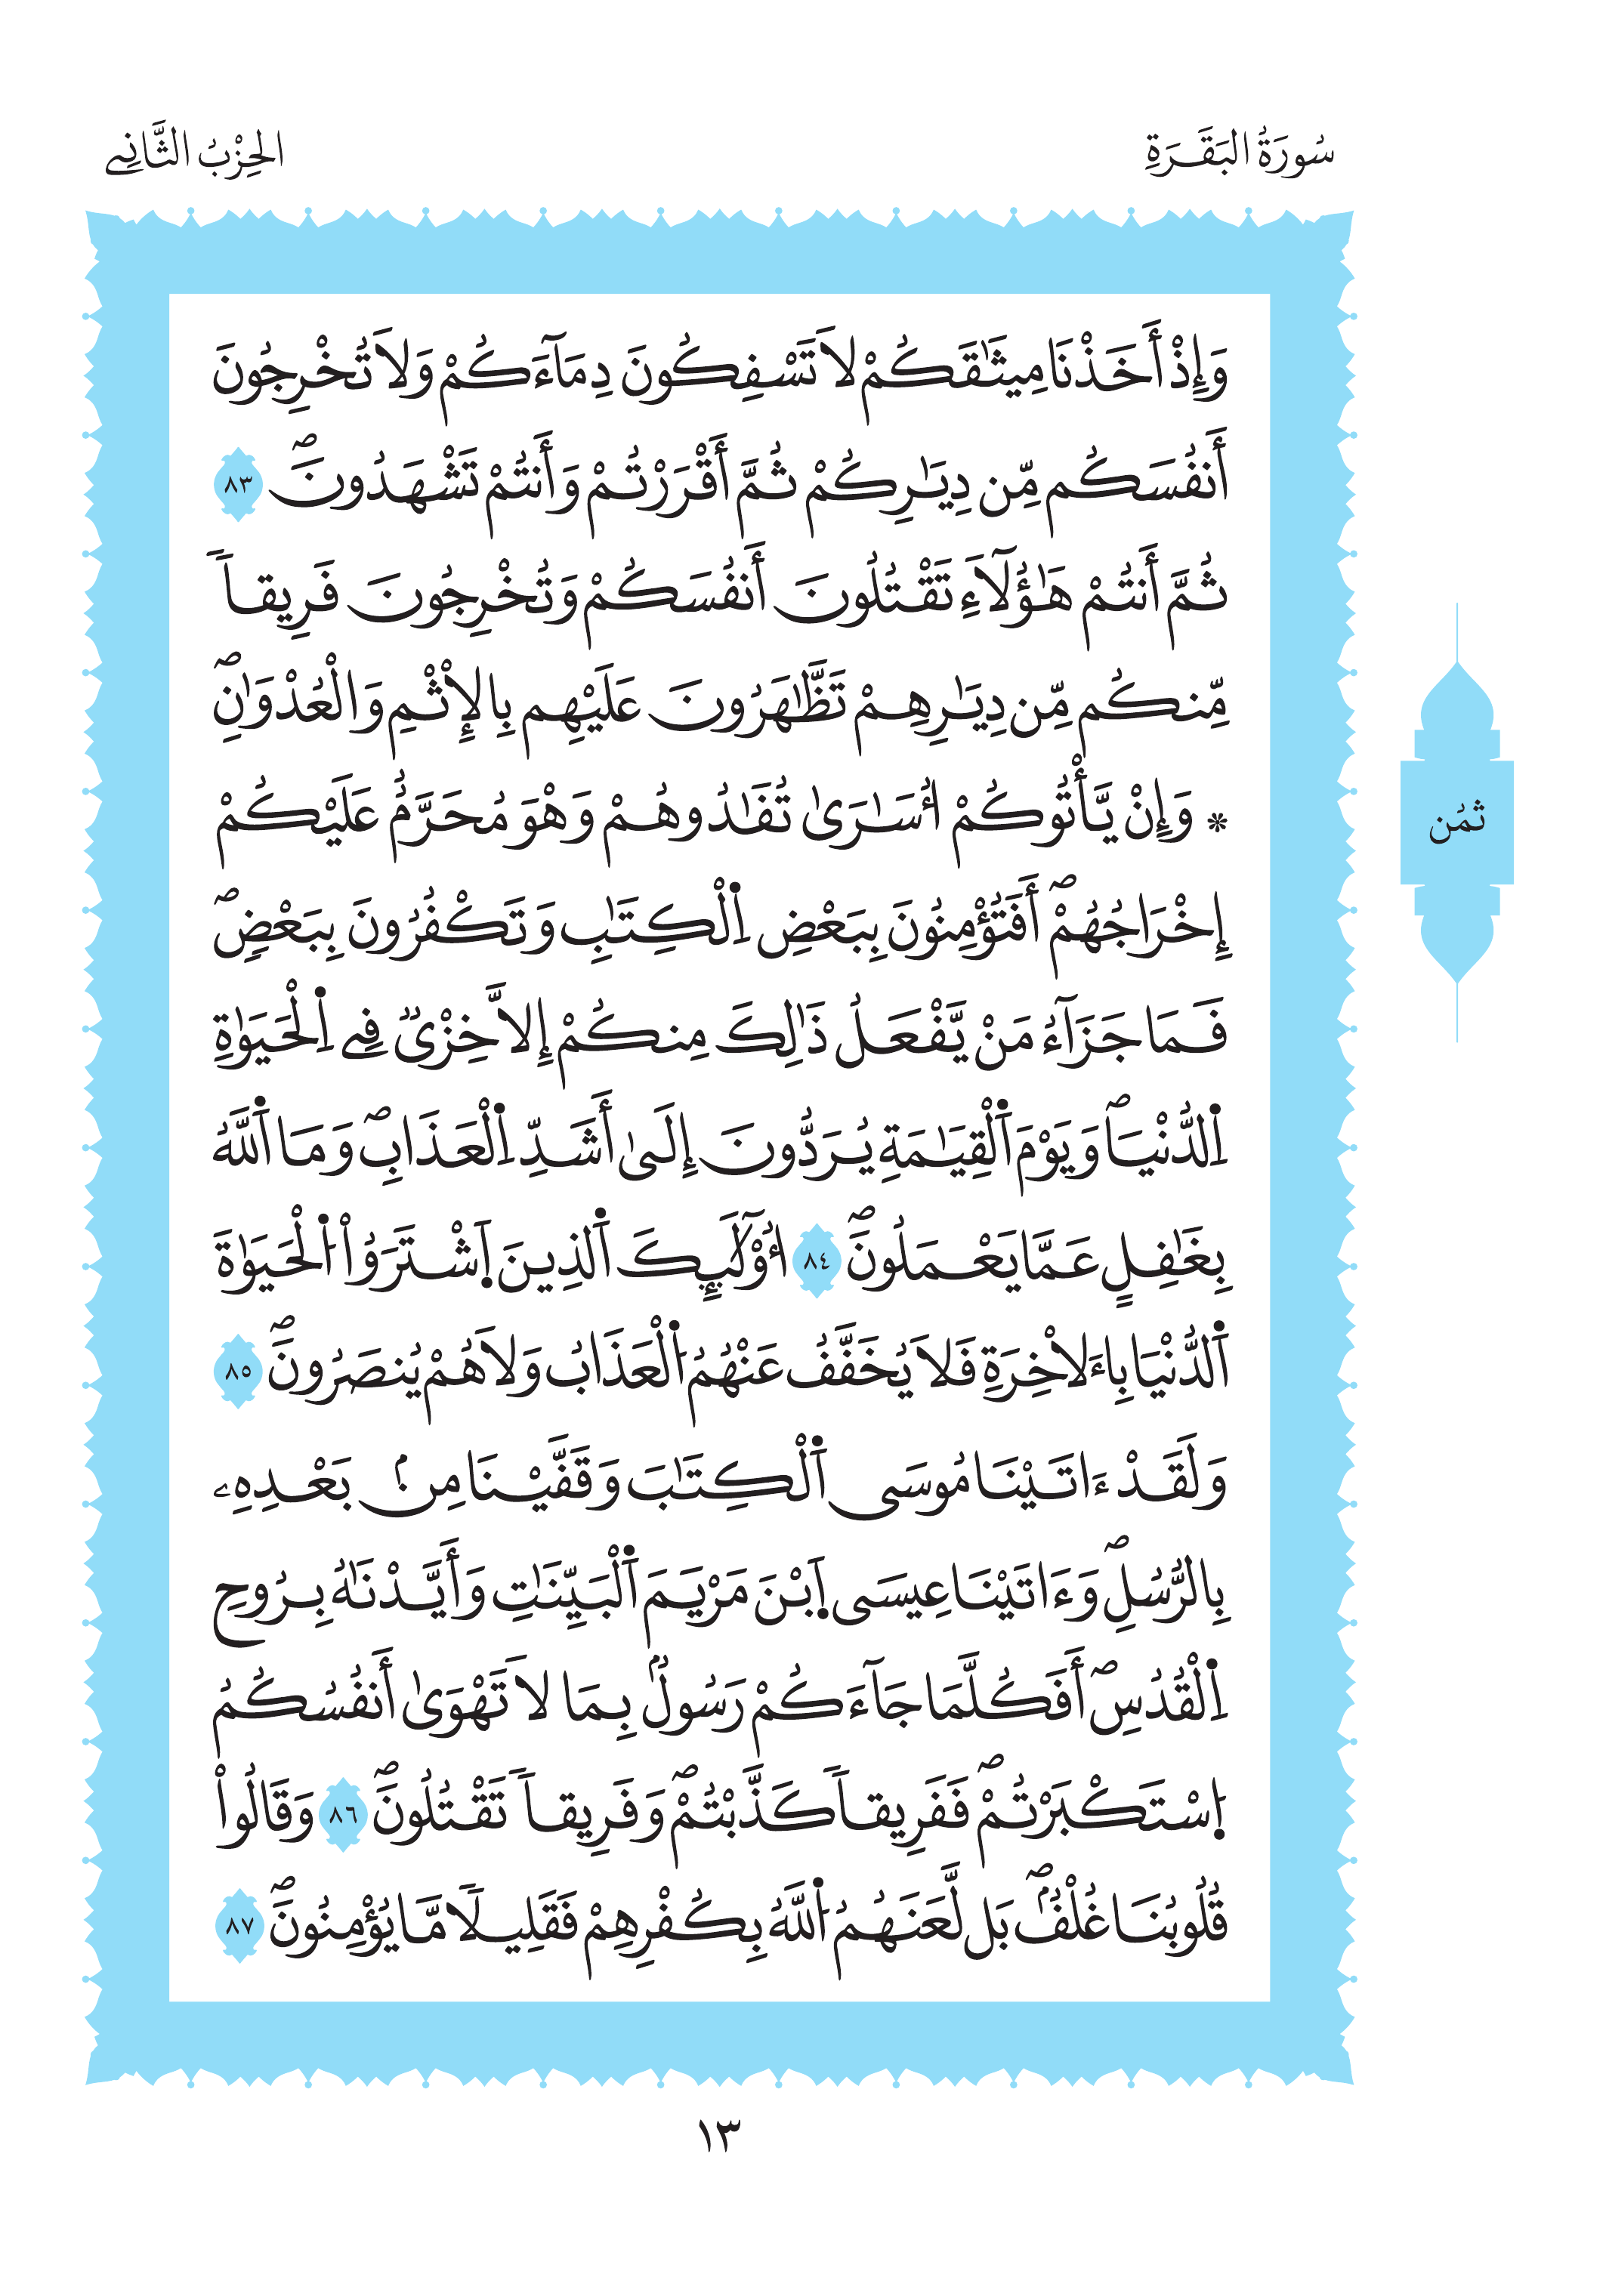 سُورَةُ البَقَرَةِ
الحِزْبُ الثَّانِے
وَإِذْ أَخَذْنَا مِيثَٰقَكُمْ لَا تَسْفِكُونَ دِمَآءَكُمْ وَلَا تُخْرِجُونَ
أَنفُسَكُم مِّن دِيَٰرِكُمْ ثُمَّ أَقْرَرْتُمْ وَأَنتُمْ تَشْهَدُونَۖ ٨٣
ثُمَّ أَنتُمْ هَٰٓؤُلَآءِ تَقْتُلُونَ أَنفُسَكُمْ وَتُخْرِجُونَ فَرِيقاٗ
مِّنكُم مِّن دِيَٰرِهِمْ تَظَّٰهَرُونَ عَلَيْهِم بِالْإِثْمِ وَالْعُدْوَٰنِۖ
* وَإِنْ يَّأْتُوكُمْ أُسَٰرَىٰ تُفَٰدُوهُمْ وَهْوَ مُحَرَّمٌ عَلَيْكُمْ
إِخْرَاجُهُمْۖ أَفَتُؤْمِنُونَ بِبَعْضِ اِ۬لْكِتَٰبِ وَتَكْفُرُونَ بِبَعْضٖۖ
فَمَا جَزَآءُ مَنْ يَّفْعَلُ ذَٰلِكَ مِنكُمْ إِلَّا خِزْيٞ فِے اِ۬لْحَيَوٰةِ
اِ۬لدُّنْيَاۖ وَيَوْمَ اَ۬لْقِيَٰمَةِ يُرَدُّونَ إِلَىٰ أَشَدِّ اِ۬لْعَذَابِۖ وَمَا اَ۬للَّهُ
بِغَٰفِلٍ عَمَّا يَعْمَلُونَۖ ٨٤ أُوْلَٰٓئِكَ اَ۬لذِينَ اَ۪شْتَرَوُاْ اُ۬لْحَيَوٰةَ
اَ۬لدُّنْيَا بِالَاخِرَةِ فَلَا يُخَفَّفُ عَنْهُمُ اُ۬لْعَذَابُ وَلَا هُمْ يُنصَرُونَۖ ٨٥
وَلَقَدْ ءَاتَيْنَا مُوسَى اَ۬لْكِتَٰبَ وَقَفَّيْنَا مِنۢ بَعْدِهِۦ
بِالرُّسُلِۖ وَءَاتَيْنَا عِيسَى اَ۪بْنَ مَرْيَمَ اَ۬لْبَيِّنَٰتِ وَأَيَّدْنَٰهُ بِرُوحِ
اِ۬لْقُدُسِۖ أَفَكُلَّمَا جَآءَكُمْ رَسُولُۢ بِمَا لَا تَهْوَىٰ أَنفُسُكُمُ
اُ۪سْتَكْبَرْتُمْۖ فَفَرِيقاٗ كَذَّبْتُمْۖ وَفَرِيقاٗ تَقْتُلُونَۖ ٨٦ وَقَالُواْ
قُلُوبُنَا غُلْفُۢۖ بَل لَّعَنَهُمُ اُ۬للَّهُ بِكُفْرِهِمْ فَقَلِيلٗا مَّا يُؤْمِنُونَۖ ٨٧
ثمُن
١٣